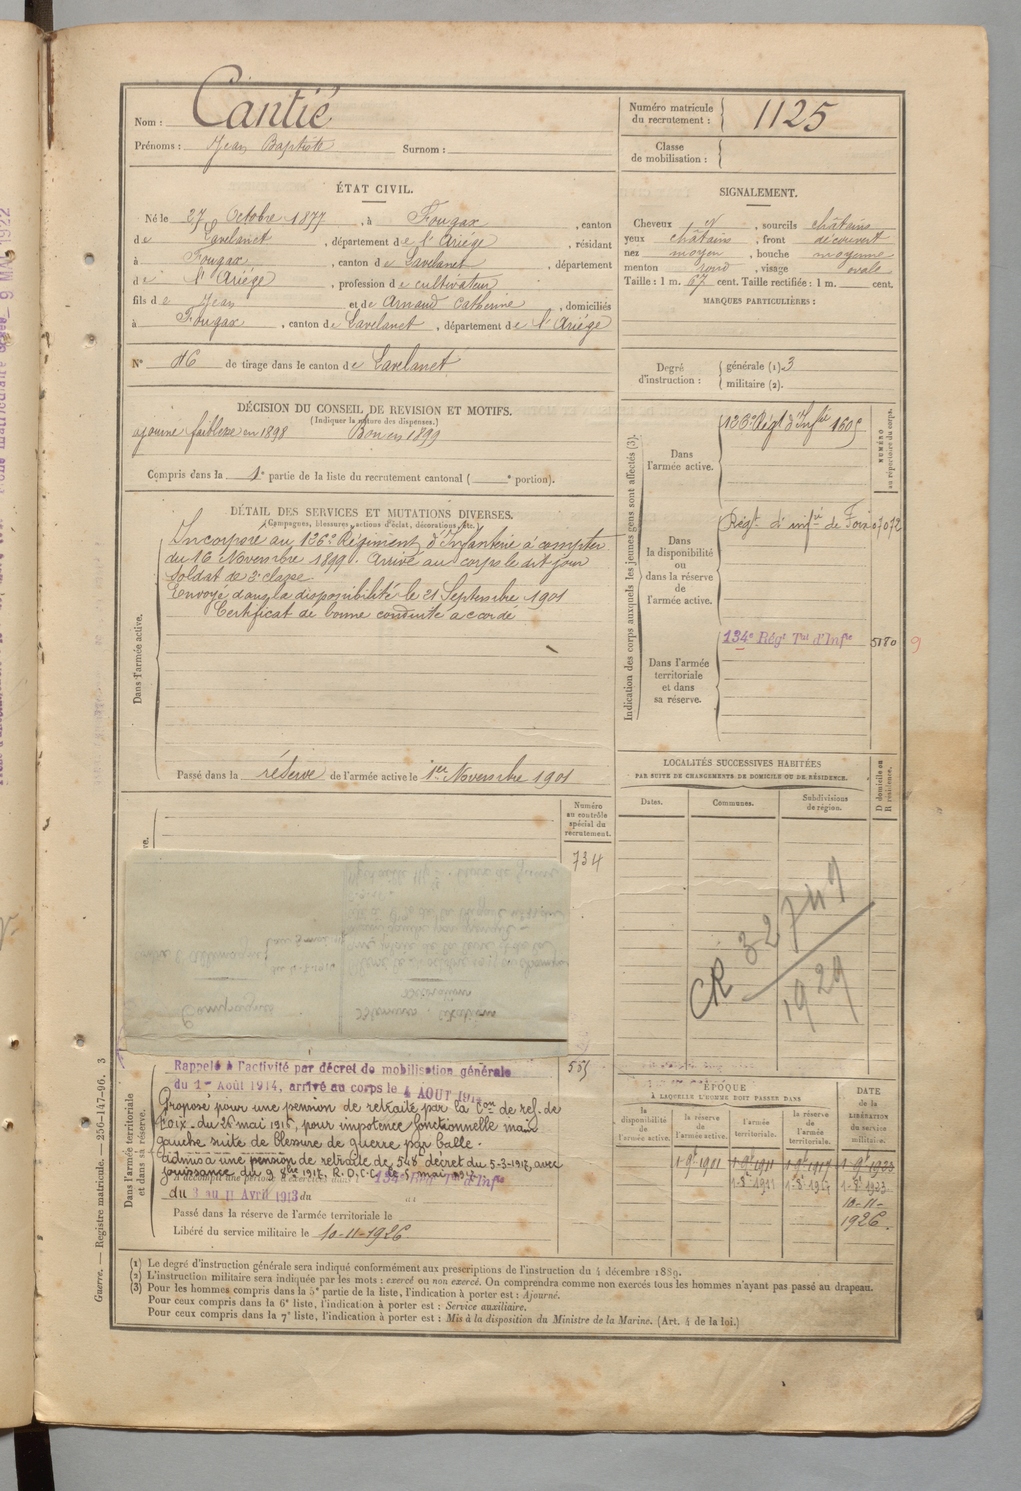 Nom : Cantié
Prénoms : Jean Baptiste Surnom :
Numéro matricule du recrutement : 1125
Classe de mobilisation :
ÉTAT CIVIL.
Né le 27 Octobre 1877, à Fougax, canton
de Lavelanet, département de l'Ariége, résidant
à Fougax, canton de Lavelanet, département
de l'Ariége, profession de cultivateur
fils de Jean et de Arnaud Catherine, domiciliés
à Fougax, canton de Lavelanet, département de l'Ariége
N° 46 de tirage dans le canton de Lavelanet
SIGNALEMENT.
Cheveux , sourcils châtains
yeux châtains, front découvert
nez moyen, bouche moyenne
menton rond, visage ovale
Taille : 1 m. 67 cent. Taille rectifiée : 1 m. cent.
MARQUES PARTICULIÈRES :
Degré d'instruction : générale (1) 3
militaire (2).
DÉCISION DU CONSEIL DE REVISION ET MOTIFS.
(Indiquer la nature des dispenses.)
ajourné faiblesse en 1898 Bon en 1899
Compris dans la 1e partie de la liste du recrutement cantonal ( e portion).
DÉTAIL DES SERVICES ET MUTATIONS DIVERSES.
Campagnes, blessures, actions d'éclat, décorations, etc.
Dans l'armée active.
Incorporé au 136e Régiment d'Infanterie à compter
du 16 Novembre 1899. Arrivé au corps le dit jour
Soldat de 2e classe.
Envoyé dans la disponibilité le 21 Septembre 1901
Certificat de bonne conduite accordé
Passé dans la réserve de l'armée active le 1er Novembre 1901
Indication des corps auxquels les jeunes gens sont affectés (3).
NUMÉRO au répertoire du corps.
Dans l'armée active.
136e Régt d'Infie 1605
Dans la disponibilité ou dans la réserve de l'armée active.
Régt d'infie de Foix 07072
Dans l'armée territoriale et dans sa réserve.
134e Régt Tal d'Infie 5180 9
LOCALITÉS SUCCESSIVES HABITÉES
PAR SUITE DE CHANGEMENTS DE DOMICILE OU DE RÉSIDENCE.
Dates. Communes. Subdivisions de région. D domicile ou R résidence.
CR 32749
1929
Numéro au contrôle spécial du recrutement.
734
Campagnes
Contre l'Allemagne
Blessures, Citations
Décorations
555
Dans l'armée territoriale et dans sa réserve.
Rappelé à l'activité par décret de mobilisation générale
du 1er Août 1914, arrivé au corps le 4 AOUT 1914
Proposé pour une pension de retraite par la Con de réf. de
Foix du 26 mai 1916, pour impotence fonctionnelle main
gauche suite de blessure de guerre par balle.
admis à une pension de retraite de 548 décret du 5-3-1917, avec
jouissance du 9 8bre 1917. R.D.C.C. le 5 mai 1917
134e Régt Tal d'Infie
du 3 au 11 Avril 1913 du au
Passé dans la réserve de l'armée territoriale le
Libéré du service militaire le 10-11-1926
ÉPOQUE
À LAQUELLE L'HOMME DOIT PASSER DANS
la disponibilité de l'armée active.
la réserve de l'armée active.
l'armée territoriale.
la réserve de l'armée territoriale.
DATE de la LIBÉRATION du service militaire.
10-11-1926.
(1) Le degré d'instruction générale sera indiqué conformément aux prescriptions de l'instruction du 4 décembre 1889.
(2) L'instruction militaire sera indiquée par les mots : exercé ou non exercé. On comprendra comme non exercés tous les hommes n'ayant pas passé au drapeau.
(3) Pour les hommes compris dans la 5e partie de la liste, l'indication à porter est : Ajourné.
Pour ceux compris dans la 6e liste, l'indication à porter est : Service auxiliaire.
Pour ceux compris dans la 7e liste, l'indication à porter est : Mis à la disposition du Ministre de la Marine. (Art. 4 de la loi.)
Guerre. — Registre matricule. — 256-147-96. 3